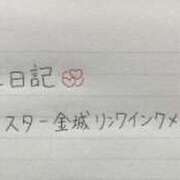 日記
スター金城リンクインクメ